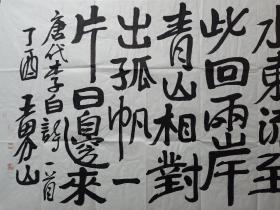 水東流至
此回兩岸
青山相對
出孤帆一
片日邊來
唐代李白詩一首
丁酉 王男山